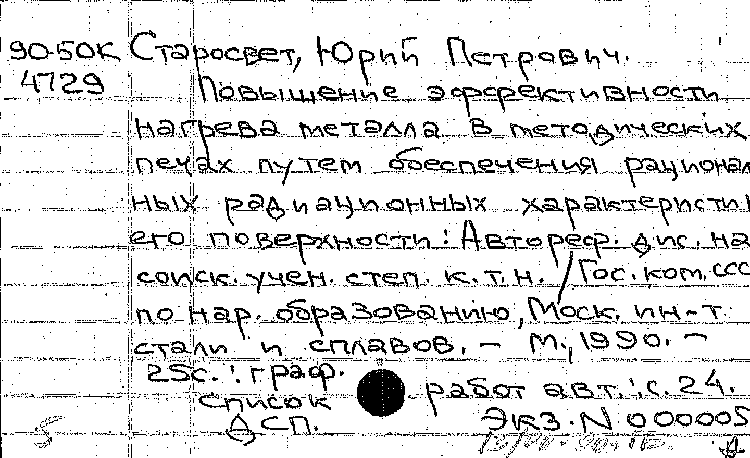 90-50К Старосвет, Юрий Петрович.
4729 Повышение эффективности
нагрева металла в методических
печах путем обеспечения рационал
ных радиационных характеристик
его поверхности: Автореф. дис. на
соиск. учен. степ. к.т.н. / Гос. ком. ССС
по нар. образованию, Моск. ин-т
стали и сплавов. – М., 1990. –
25с. : граф.
Список работ авт.: с. 24.
ДСП. Экз. N 000005